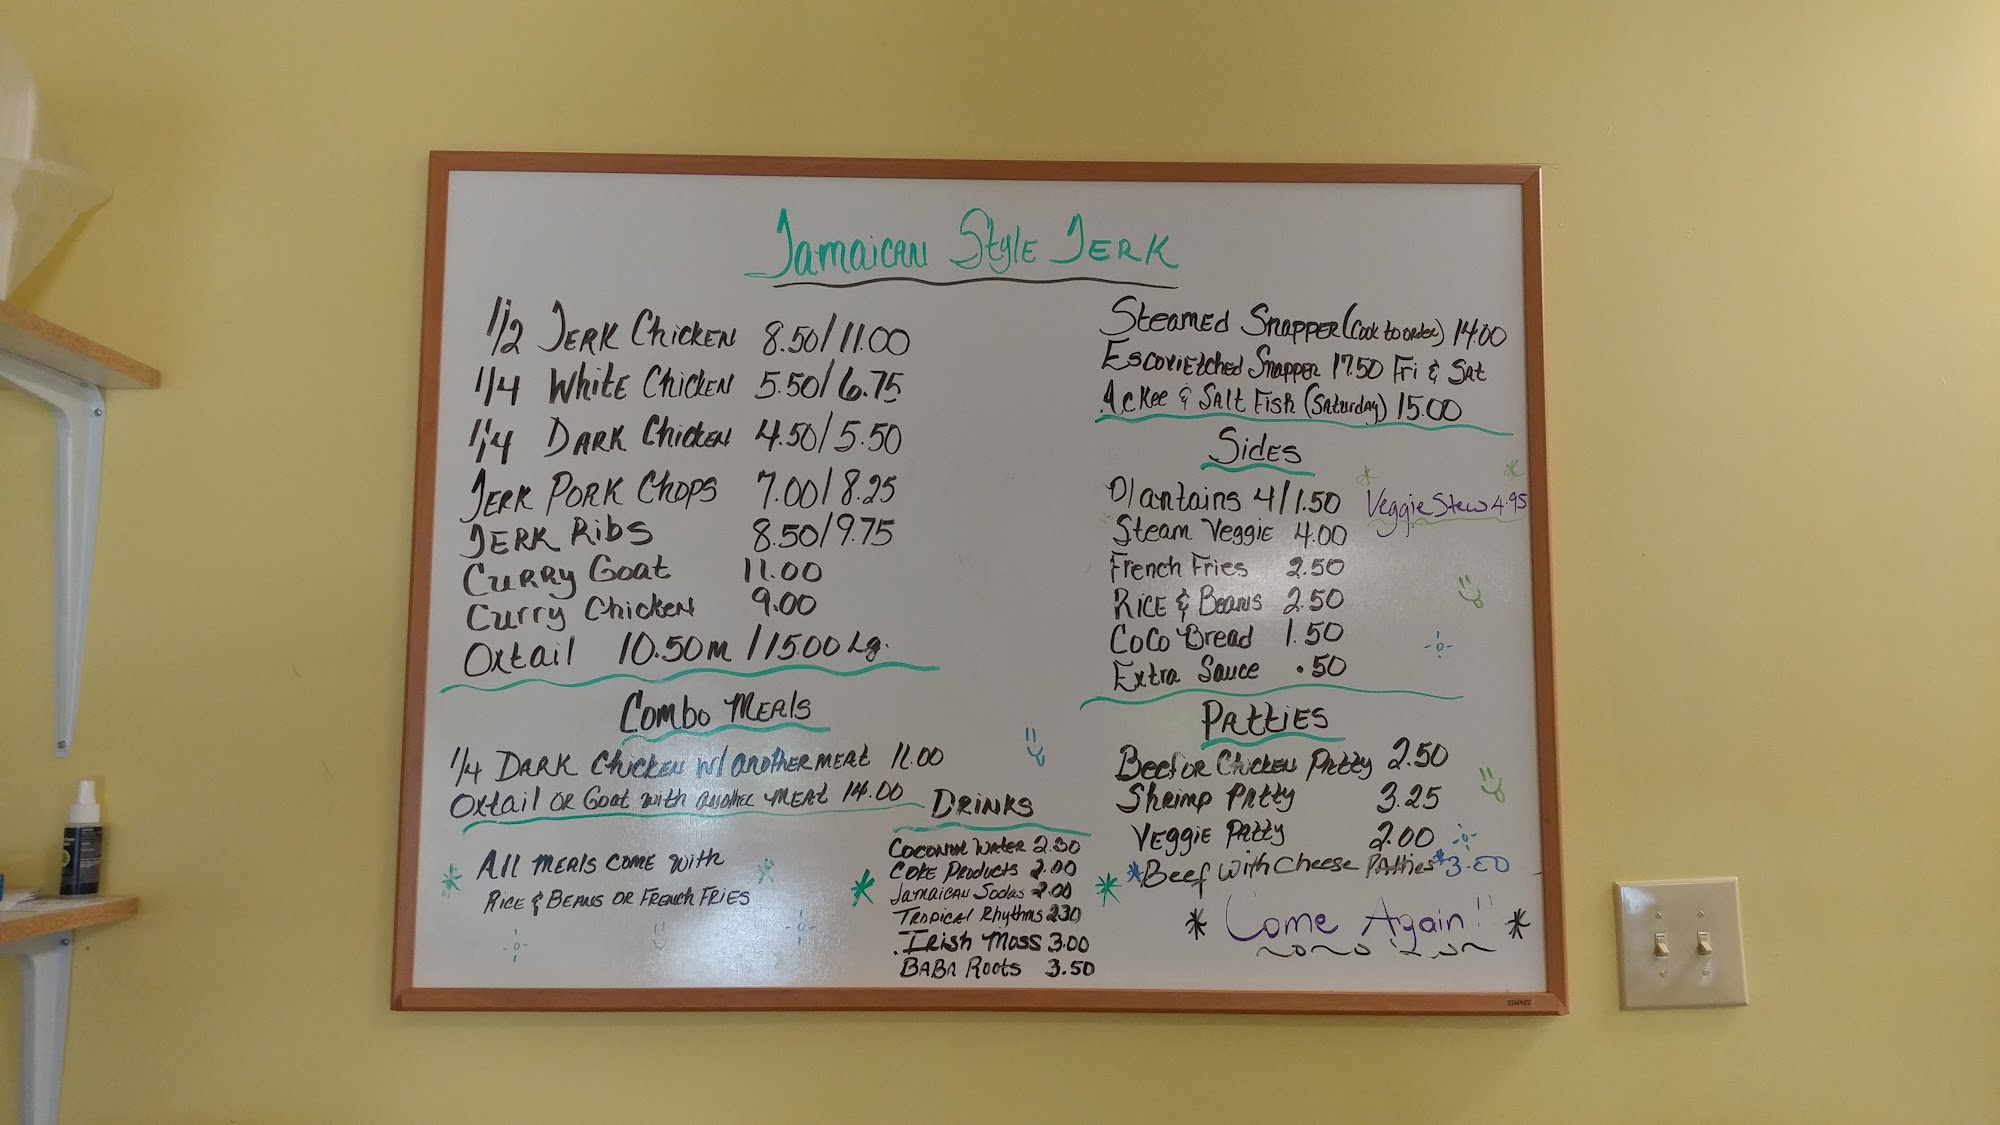 Jamaican Style Jerk
1/2 Jerk Chicken 8.50/11.00
1/4 White Chicken 5.50/6.75
1/4 Dark Chicken 4.50/5.50
Jerk Pork Chops 7.00/8.25
Jerk Ribs 8.50/9.75
Curry Goat 11.00
Curry Chicken 9.00
Oxtail 10.50m/15.00 Lg.
Combo Meals
1/4 Dark Chicken w/ another meat 11.00
Oxtail or Goat with another meat 14.00
* All meals come with *
Rice & Beans or French Fries
Drinks
Coconut Water 2.50
Coke Products 2.00
* Jamaican Sodas 2.00 *
Tropical Rhythms 2.30
Irish Moss 3.00
Baba Roots 3.50
Steamed Snapper (Cook to order) 14.00
Escovietched Snapper 17.50 Fri & Sat
Ackee & Salt Fish (Saturday) 15.00
Sides
Plantains 4/1.50
Veggie Stew 4.95
Steam Veggie 4.00
French Fries 2.50
Rice & Beans 2.50
CoCo Bread 1.50
Extra Sauce .50
Patties
Beef or Chicken Patty 2.50
Shrimp Patty 3.25
Veggie Patty 2.00
*Beef with Cheese Patties* 3.00
* Come Again!! *
STAPLES